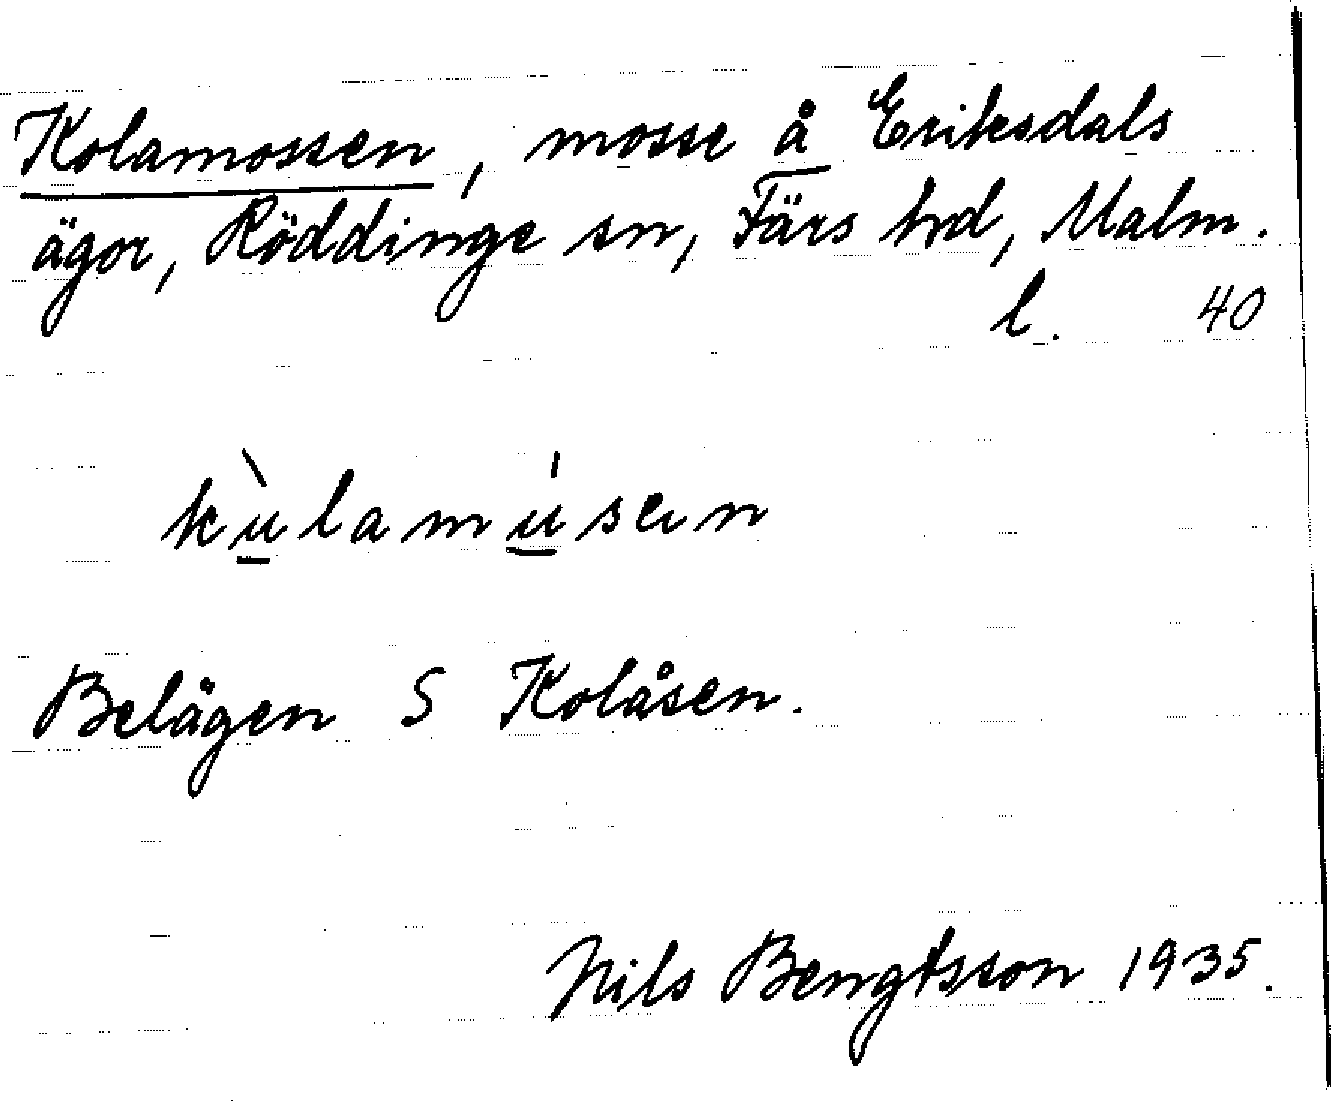 Kolamossen, mosse å Eriksdals
ägor, Röddinge sn, Färs hd, Malm.
l. 40
kùlamúsen
Belägen S Kolåsen.
Nils Bengtsson 1935.